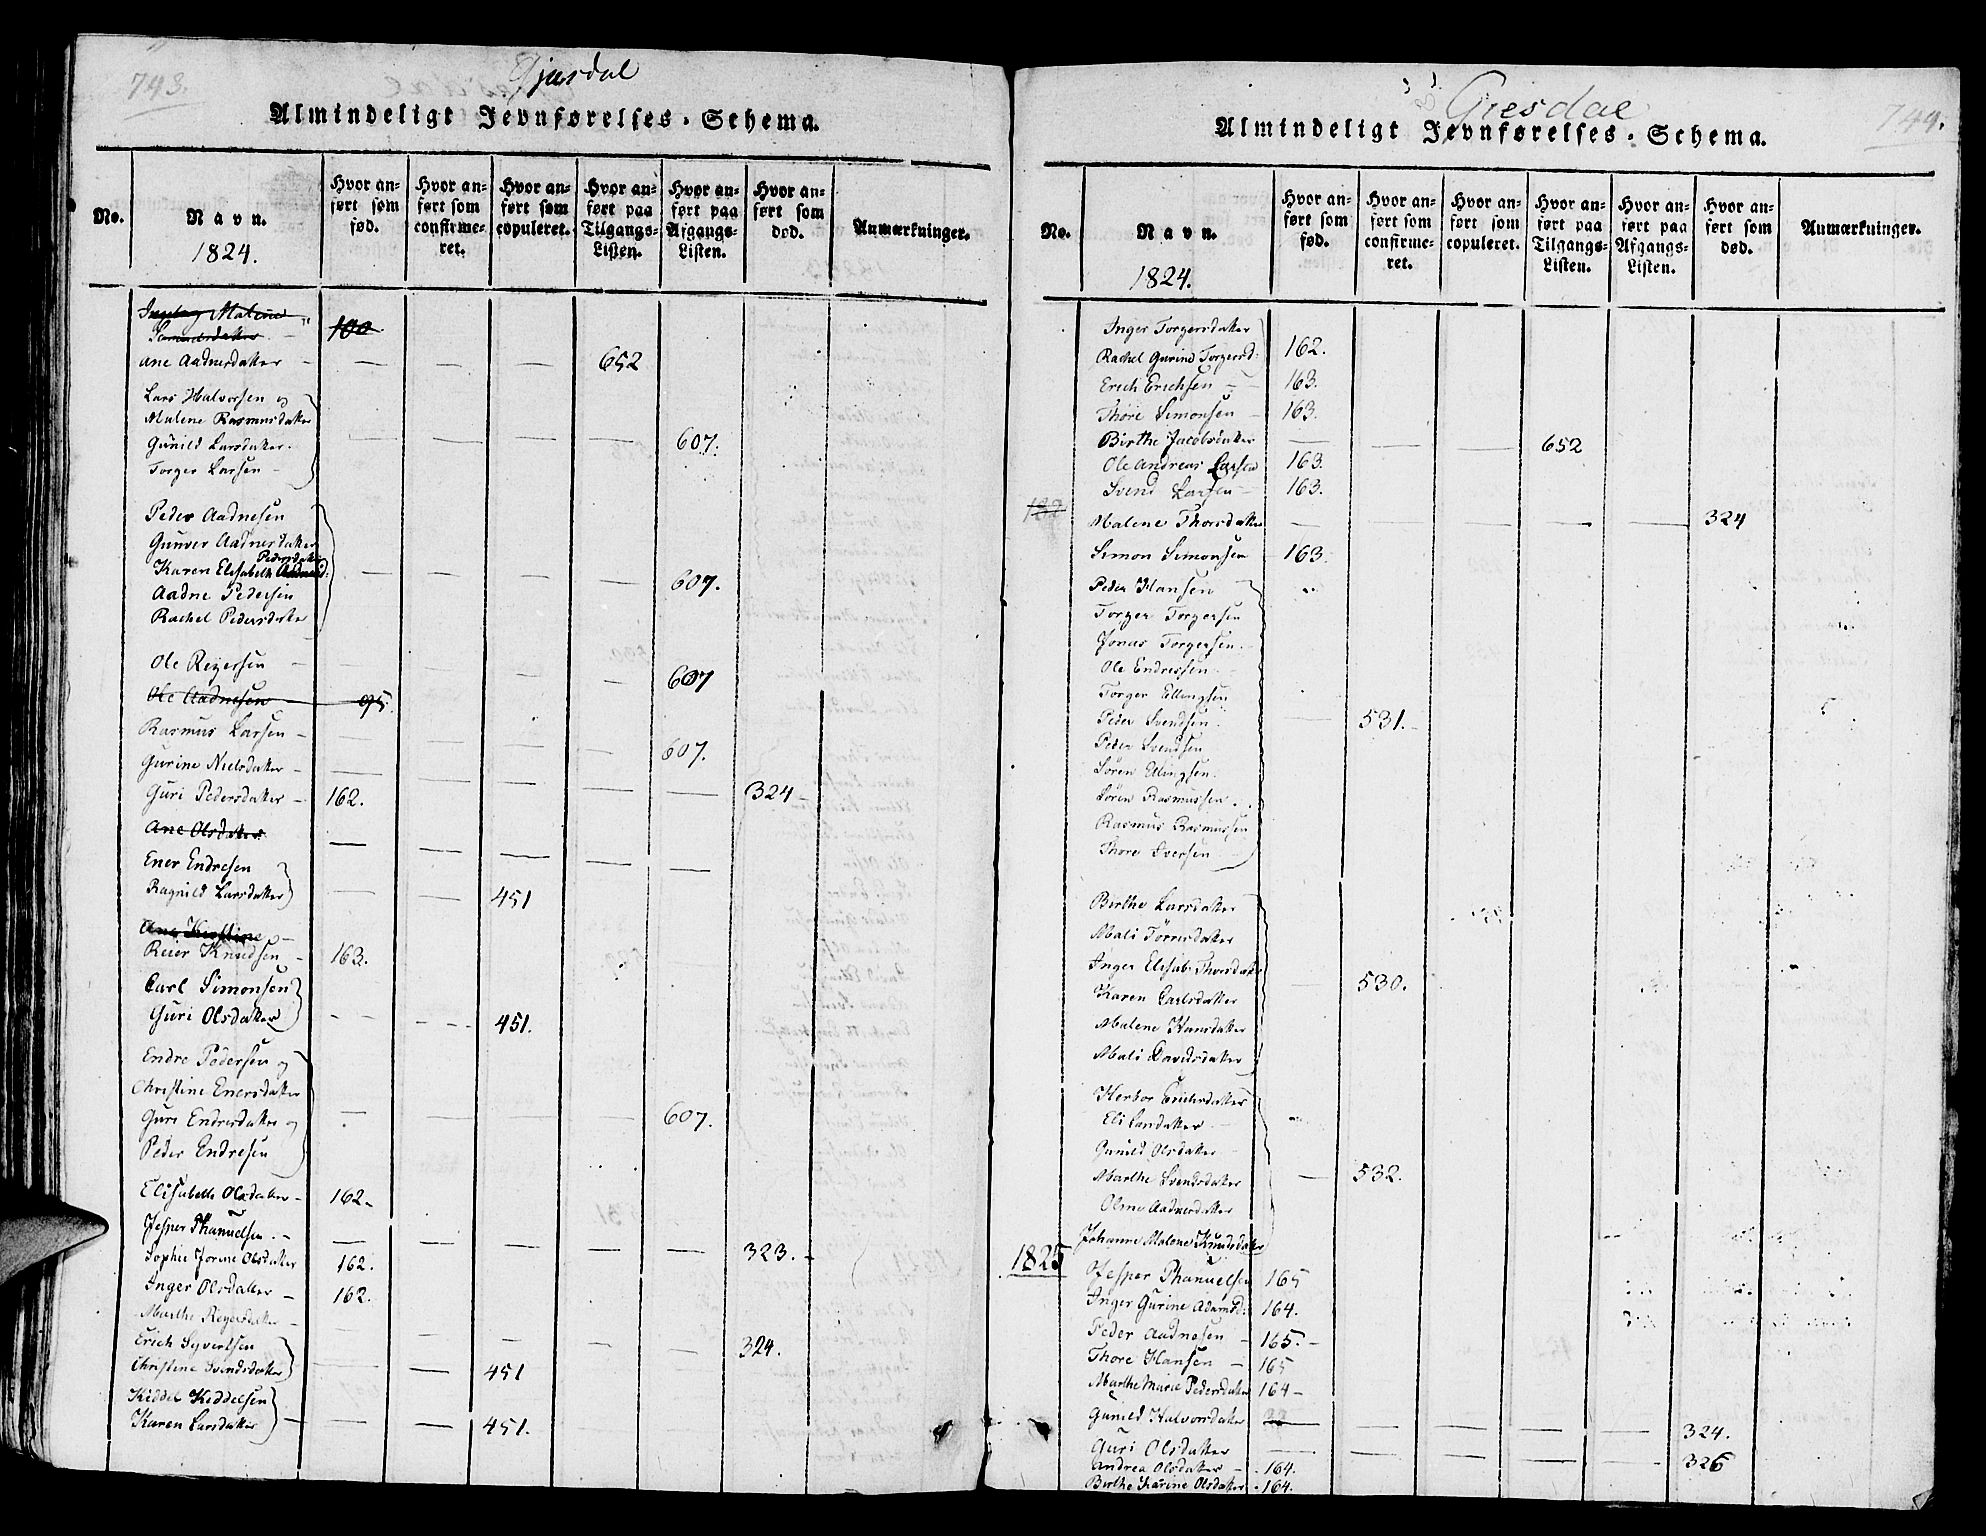 743.
Gjesdal
Almindeligt Jevnførelses-Schema.
No.
Navn.
1824.
Hvor anført som fød.
Hvor anført som confirmeret.
Hvor anført som copuleret.
Hvor anført paa Tilgangs-Listen.
Hvor anført paa Afgangs-Listen.
Hvor anført som død.
Anmærkninger.
Malene
100
Ane Aadnesdatter — — — — 652
Lars Halvorsen og
Malene Rasmusdatter
Gunild Larsdatter — — — — 607.
Torger Larsen
Peder Aadnesen
Gunver Aadnesdatter
Pedersdatter
Karen Elisabeth — — — — 607.
Aadne Pedersen
Rachel Pedersdatter
Ole Reyersen — — — — 607
Ole Aadnesen 95.
Rasmus Larsen — — — — 607.
Gurine Nielsdatter — — — — — 324
Guri Pedersdatter 162.
Ane Olsdatter
Ener Endresen
Ragnild Larsdatter — — 451
Ane Kirstine
Reier Knudsen 163.
Carl Simonsen
Guri Olsdatter — — 451.
Endre Pedersen og
Christine Enersdatter
Guri Endresdatter og — 607.
Peder Endresen
Elisabeth Olsdatter 162
Jesper Phanuelsen — — — — — 323.
Sophie Jorine Olsdatter 162.
Inger Olsdatter 162.
Marthe Reyersdatter — — — — — 324.
Erich Syvertsen
Christine Svendsdatter — — 451
Kiddel Kiddelsen
Karen Larsdatter — — 451.
744.
Giesdal
Almindeligt Jevnførelses-Schema.
No.
Navn.
1824.
Hvor anført som fød.
Hvor anført som confirmeret.
Hvor anført som copuleret.
Hvor anført paa Tilgangs-Listen.
Hvor anført paa Afgangs-Listen.
Hvor anført som død.
Anmærkninger.
Inger Torgersdatter
Rachel Gurine Torgersd: 162.
Erich Erichsen 163.
Thore Simonsen 163.
Birthe Jacobsdatter — — — 652
Ole Andreas Larsen 163.
Svend Larsen 163.
Malene Thorsdatter — — — — — 324
Simon Simonsen 163.
Peder Hansen
Torger Torgersen
Jonas Torgersen
Ole Endresen
Torger Ellingsen
Peder Svendsen — 531.
Peder Svendsen
Søren Ellingsen
Søren Rasmussen
Rasmus Rasmussen
Thore Sversen
Birthe Larsdatter
Mali Tørresdatter
Inger Elisab: Thorsdatter
Karen Carlsdatter — 530.
Malene Hansdatter
Mali Davidsdatter
Herbor Erichsdatter
Eli Larsdatter
Gunild Olsdatter
Marthe Svendsdatter — 532.
Oline Aadnesdatter
Johanne Malene Knudsdatter
1825
Jesper Phanuelsen 165
Inger Gurine Adamsd: 164.
Peder Aadnesen 165.
Thore Hansen 165
Marthe Marie Pedersdatter 164
Gunild Halvorsdatter — — — — 324.
Guri Olsdatter — — — — — 326
Andrea Olsdatter 164.
Birthe Karine Olsdatter 164.